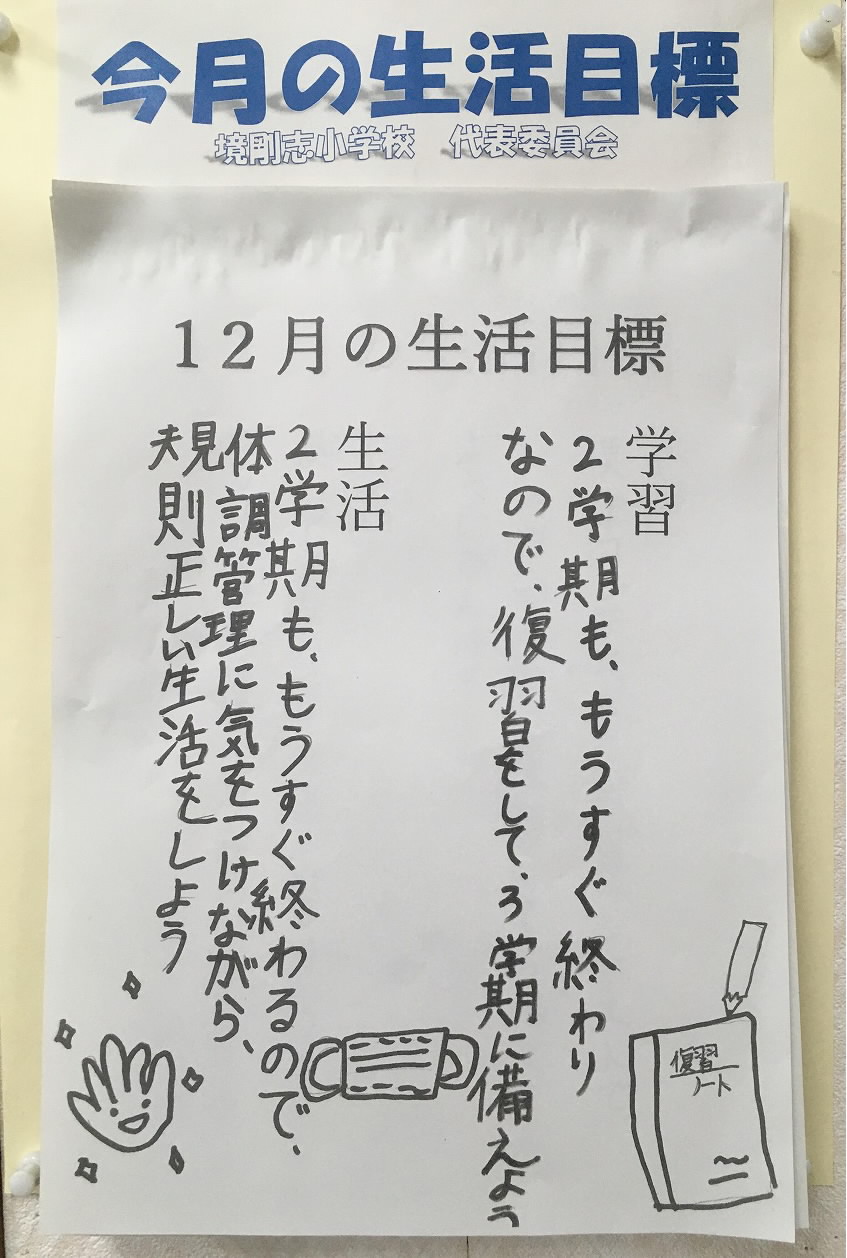 今月の生活目標
境剛志小学校 代表委員会
12月の生活目標
学習
2学期も、もうすぐ終わり
なので、復習をして、3学期に備えよう
生活
2学期も、もうすぐ終わるので、
体調管理に気をつけながら、
規則正しい生活をしよう
復習
ノート